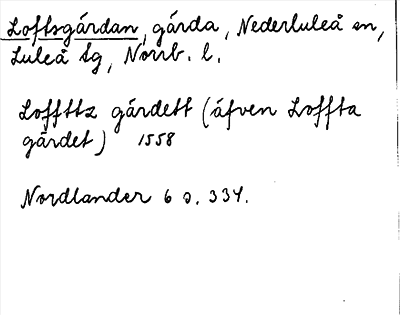 Loftsgärdan, gärda, Nederluleå sn,
Luleå tg, Norrb. l.
Loffttz gärdett (äfven Loffta
gärdet) 1558
Nordlander 6 s. 334.